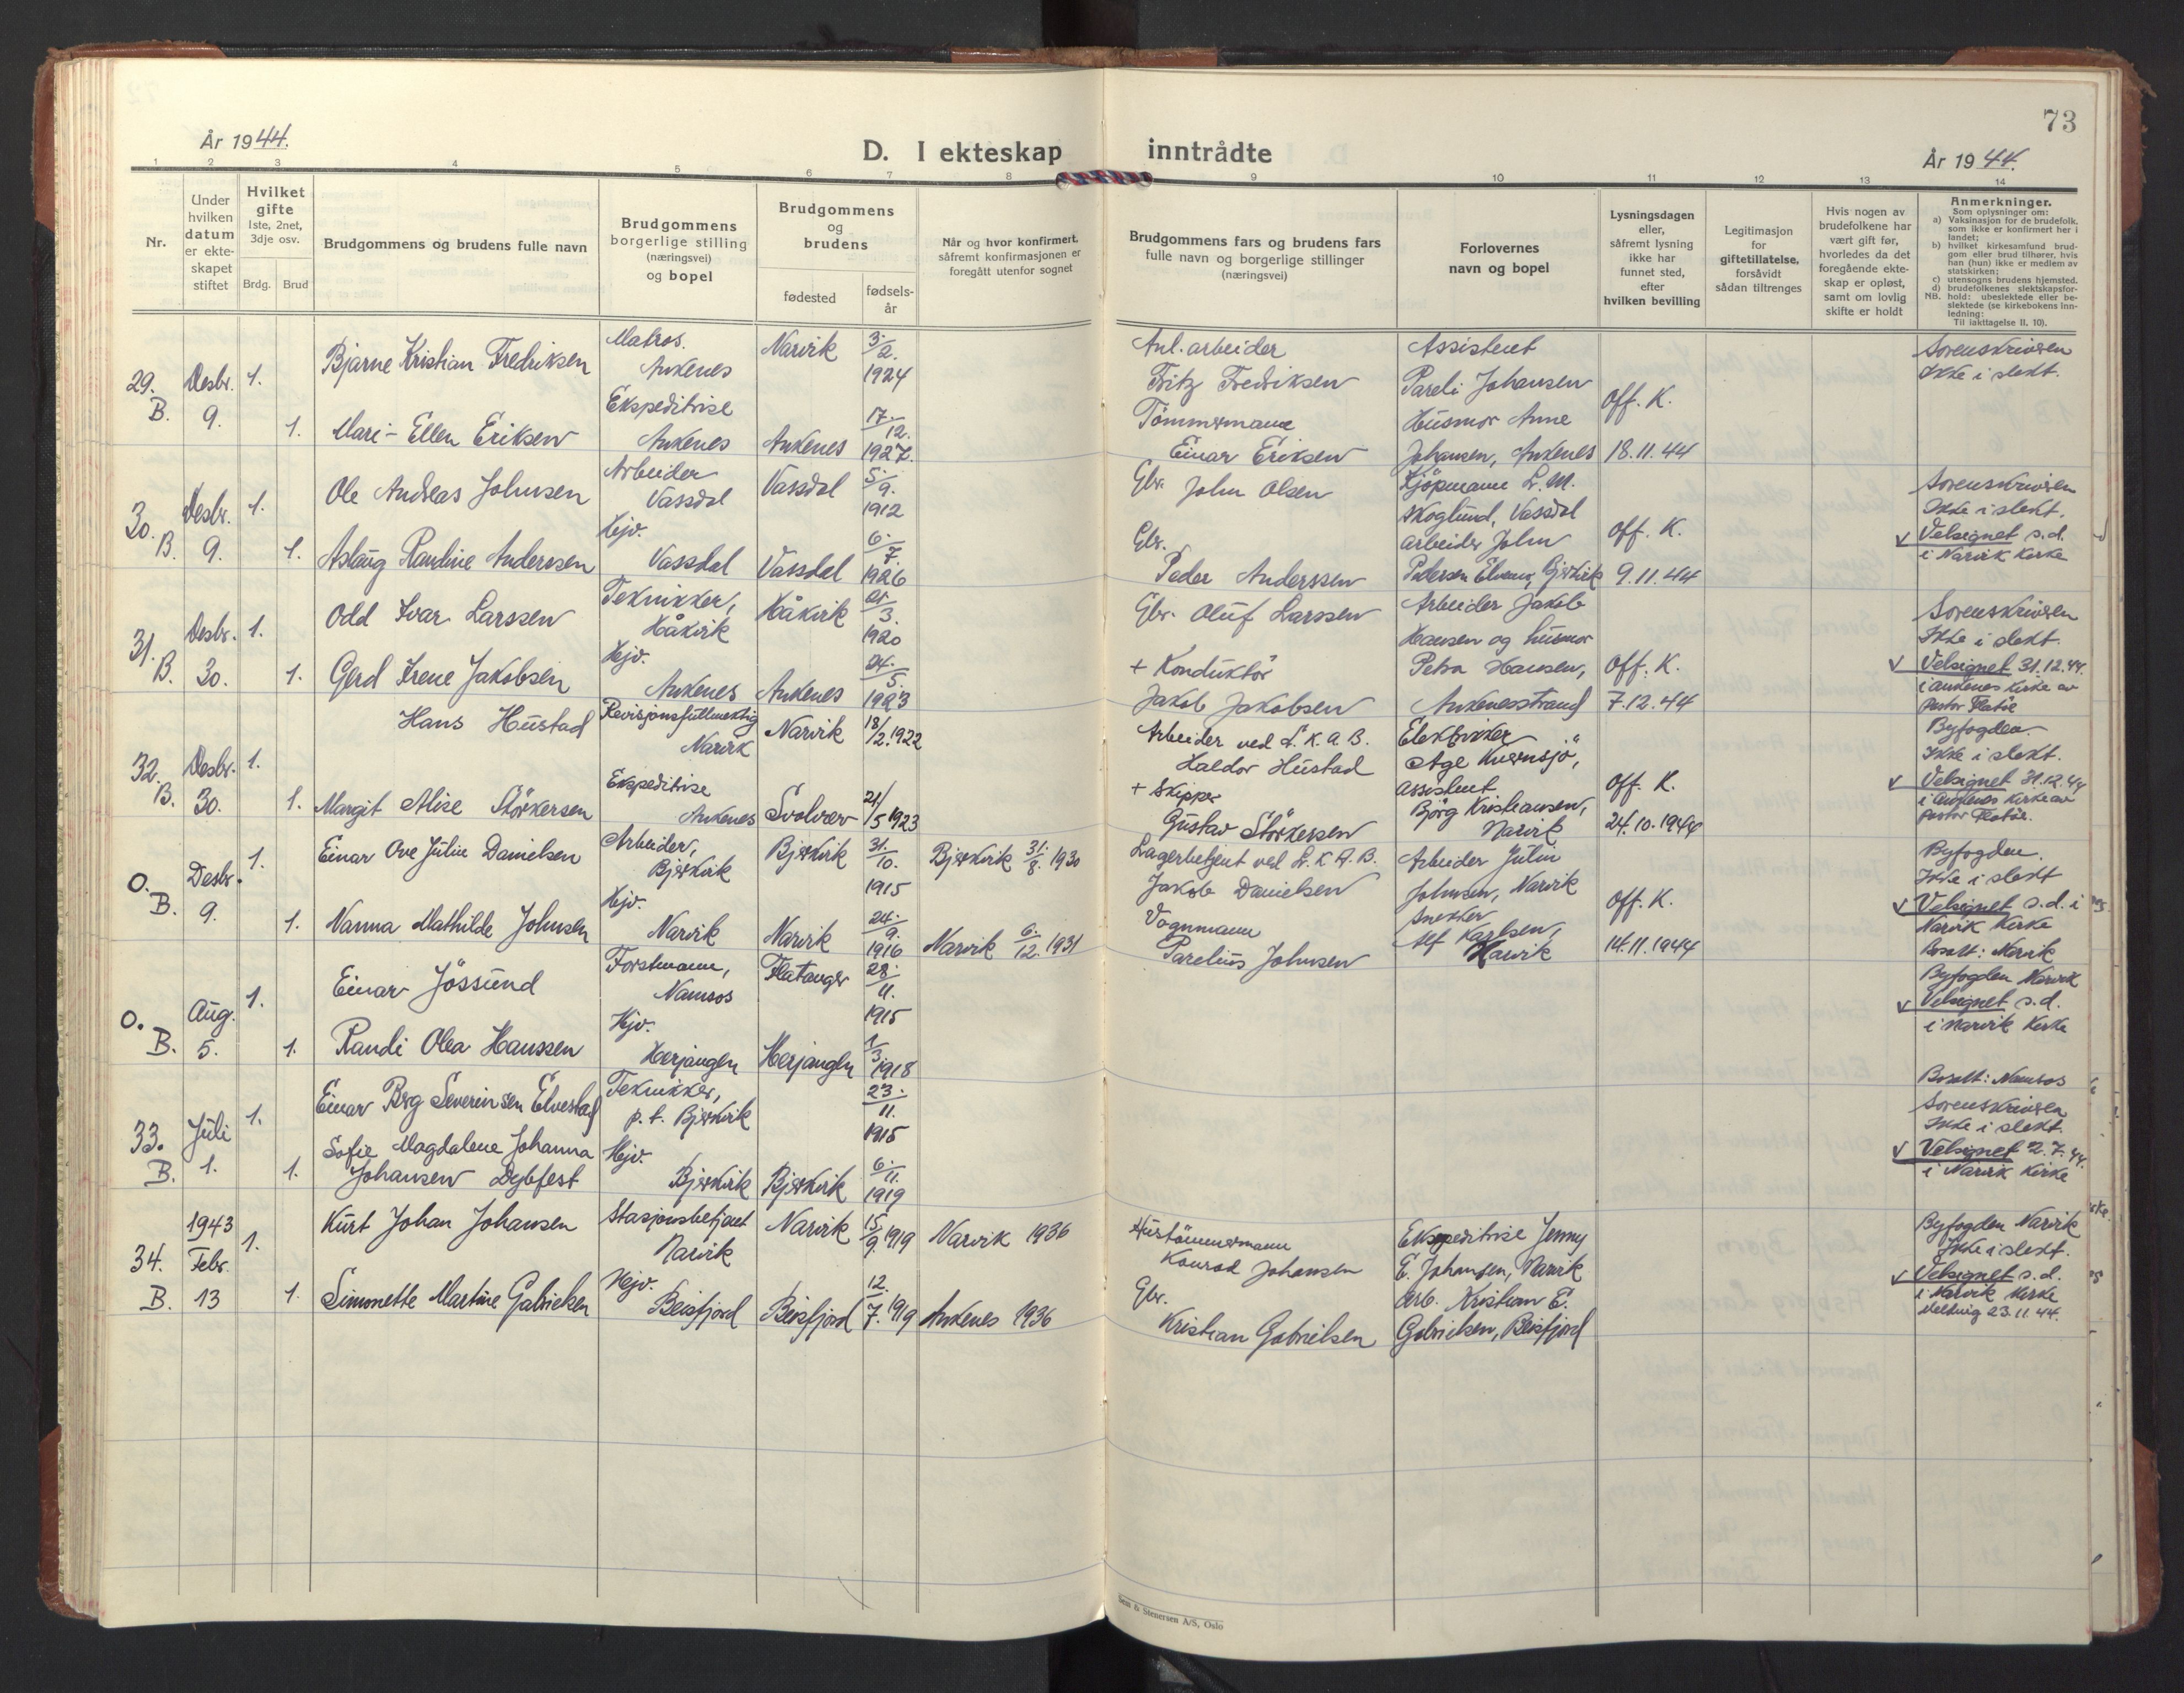 73
År 1944.
D. I ekteskap inntrådte
År 1944.
1 2 3 4 5 6 7 8 9 10 11 12 13 14
Nr.
Under
hvilken
datum
er ekte-
skapet
stiftet
Hvilket
gifte
1ste, 2net,
3dje osv.
Brdg. Brud
Brudgommens og brudens fulle navn
Brudgommens
borgerlige stilling
(næringsvei)
og bopel
Brudgommens
og
brudens
fødested
fødsels-
år
Når og hvor konfirmert,
såfremt konfirmasjonen er
foregått utenfor sognet
Brudgommens fars og brudens fars
fulle navn og borgerlige stillinger
(næringsvei)
Forlovernes
navn og bopel
Lysningsdagen
eller,
såfremt lysning
ikke har
funnet sted,
efter
hvilken bevilling
Legitimasjon
for
giftetillatelse,
forsåvidt
sådan tiltrenges
Hvis nogen av
brudefolkene har
vært gift før,
hvorledes da det
foregående ekte-
skap er opløst,
samt om lovlig
skifte er holdt
Anmerkninger.
Som oplysninger om:
a) Vaksinasjon for de brudefolk,
som ikke er konfirmert her i
landet;
b) hvilket kirkesamfund brud-
gom eller brud tilhører, hvis
han (hun) ikke er medlem av
statskirken;
c) utensogns brudens hjemsted.
d) brudefolkenes slektskapsfor-
NB. hold: ubeslektede eller be-
slektede (se kirkebokens inn-
ledning:
Til iakttagelse II. 10).
29. B.
Desbr. 9.
1.
Bjarne Kristian Fredriksen
Matros.
Ankenes
Narvik
3/2. 1924
Anl. arbeider
Fritz Fredriksen
Assistent
Pareli Johansen
Sorenskriveren
Ikke i slekt.
1.
Mari-Ellen Eriksen
Ekspeditrise
Ankenes
Ankenes
17/12. 1927.
Tömmermann
Einar Eriksen
Husmor Anne
Johansen, Ankenes
Off. K.
18.11.44
30. B.
Desbr. 9.
1.
Ole Andreas Johnsen
Arbeider
Vassdal
Vassdal
5/9. 1912
Gbr. John Olsen
Kjöpmann L. M.
Skoglund, Vassdal
Sorenskriveren
Ikke i slekt.
Velsignet s.d.
i Narvik Kirke
1.
Aslaug Randine Anderssen
Hjv.
Vassdal
Vassdal
6/7. 1926
Gbr.
Peder Anderssen
arbeider John
Pedersen Elvenes, Bjerkvik
Off. K.
9.11.44
31. B.
Desbr. 30.
1.
Odd Ivar Larssen
Tekniker,
Håkvik
Håkvik
21/3. 1920
Gbr. Oluf Larssen
Arbeider Jakob
Hansen og husmor
Sorenskriveren
Ikke i slekt.
Velsignet 31.12.44.
i Ankenes Kirke av
pastor Flatöe
1.
Gerd Irene Jakobsen
Hjv.
Ankenes
Ankenes
24/5. 1923
+ Konduktör
Jakob Jakobsen
Petra Hansen,
Ankenesstrand
Off. K.
7.12.44
32. B.
Desbr. 30.
1.
Hans Hustad
Revisjonsfullmektig
Narvik
Narvik
18/2. 1922
Arbeider ved L.K.A.B.
Haldor Hustad
Elektriker
Åge Kvernsjö,
Byfogden
Ikke i slekt.
Velsignet 31.12.44
i Ankenes Kirke av
pastor Flatöe.
1.
Margit Alise Störkersen
Ekspeditrise
Ankenes
Svolvær
21/5 1923
+ Skipper
Gustav Störkersen
assistent
Bjørg Kristiansen,
Narvik
Off. K.
24.10.1944
0. B.
Desbr. 9.
1.
Einar Ove Julin Danielsen
Arbeider,
Bjerkvik
Bjerkvik
31/10. 1915
Bjerkvik 31/8. 1930
Lagerbetjent ved L.K.A.B.
Jakob Danielsen
Arbeider Julin
Johnsen, Narvik
Byfogden.
Ikke i slekt
Velsignet s.d. i
Narvik Kirke
Bosatt: Narvik
1.
Nanna Mathilde Johnsen
Hjv.
Narvik
Narvik
24/9. 1916
Narvik 6/12. 1931
Vognmann
Parelius Johnsen
Snekker
Alf Karlsen,
Narvik
Off. K.
14.11.1944
0. B.
Aug. 5.
1.
Einar Jössund
Forstmann,
Namsos
Flatanger
28/11. 1915
Byfogden Narvik
Velsignet s.d.
i Narvik Kirke
1.
Randi Olea Hanssen
Hjv.
Herjangen
Herjangen
1/3 1918
Bosatt: Namsos
33. B.
Juli 1.
1.
Einar Berg Severinsen Elvestad
Tekniker,
p.t. Bjerkvik
23/11. 1915
Sorenskriveren
Ikke i slekt.
Velsignet 2.7.44.
i Narvik Kirke
1.
Sofie Magdalene Johanna
Johansen Dybfest
Hjv.
Bjerkvik
Bjerkvik
6/11. 1919
34. B.
1943
Febr. 13
1.
Kurt Johan Johansen
Stasjonsbetjent
Narvik
Narvik
15/9. 1919
Narvik 1936
Hustömmermann
Konrad Johansen
Ekspeditrise Jenny
E. Johansen, Narvik
Byfogden Narvik
Ikke i slekt.
Velsignet s.d.
i Narvik Kirke
Melding 23.11.44.
1.
Simonette Martine Gabrielsen
Hjv.
Beisfjord
Beisfjord
12/7. 1919
Ankenes 1936
Gbr.
Kristian Gabrielsen
Arb. Kristian E.
Gabrielsen, Beisfjord
& Stenersen A/S, Oslo